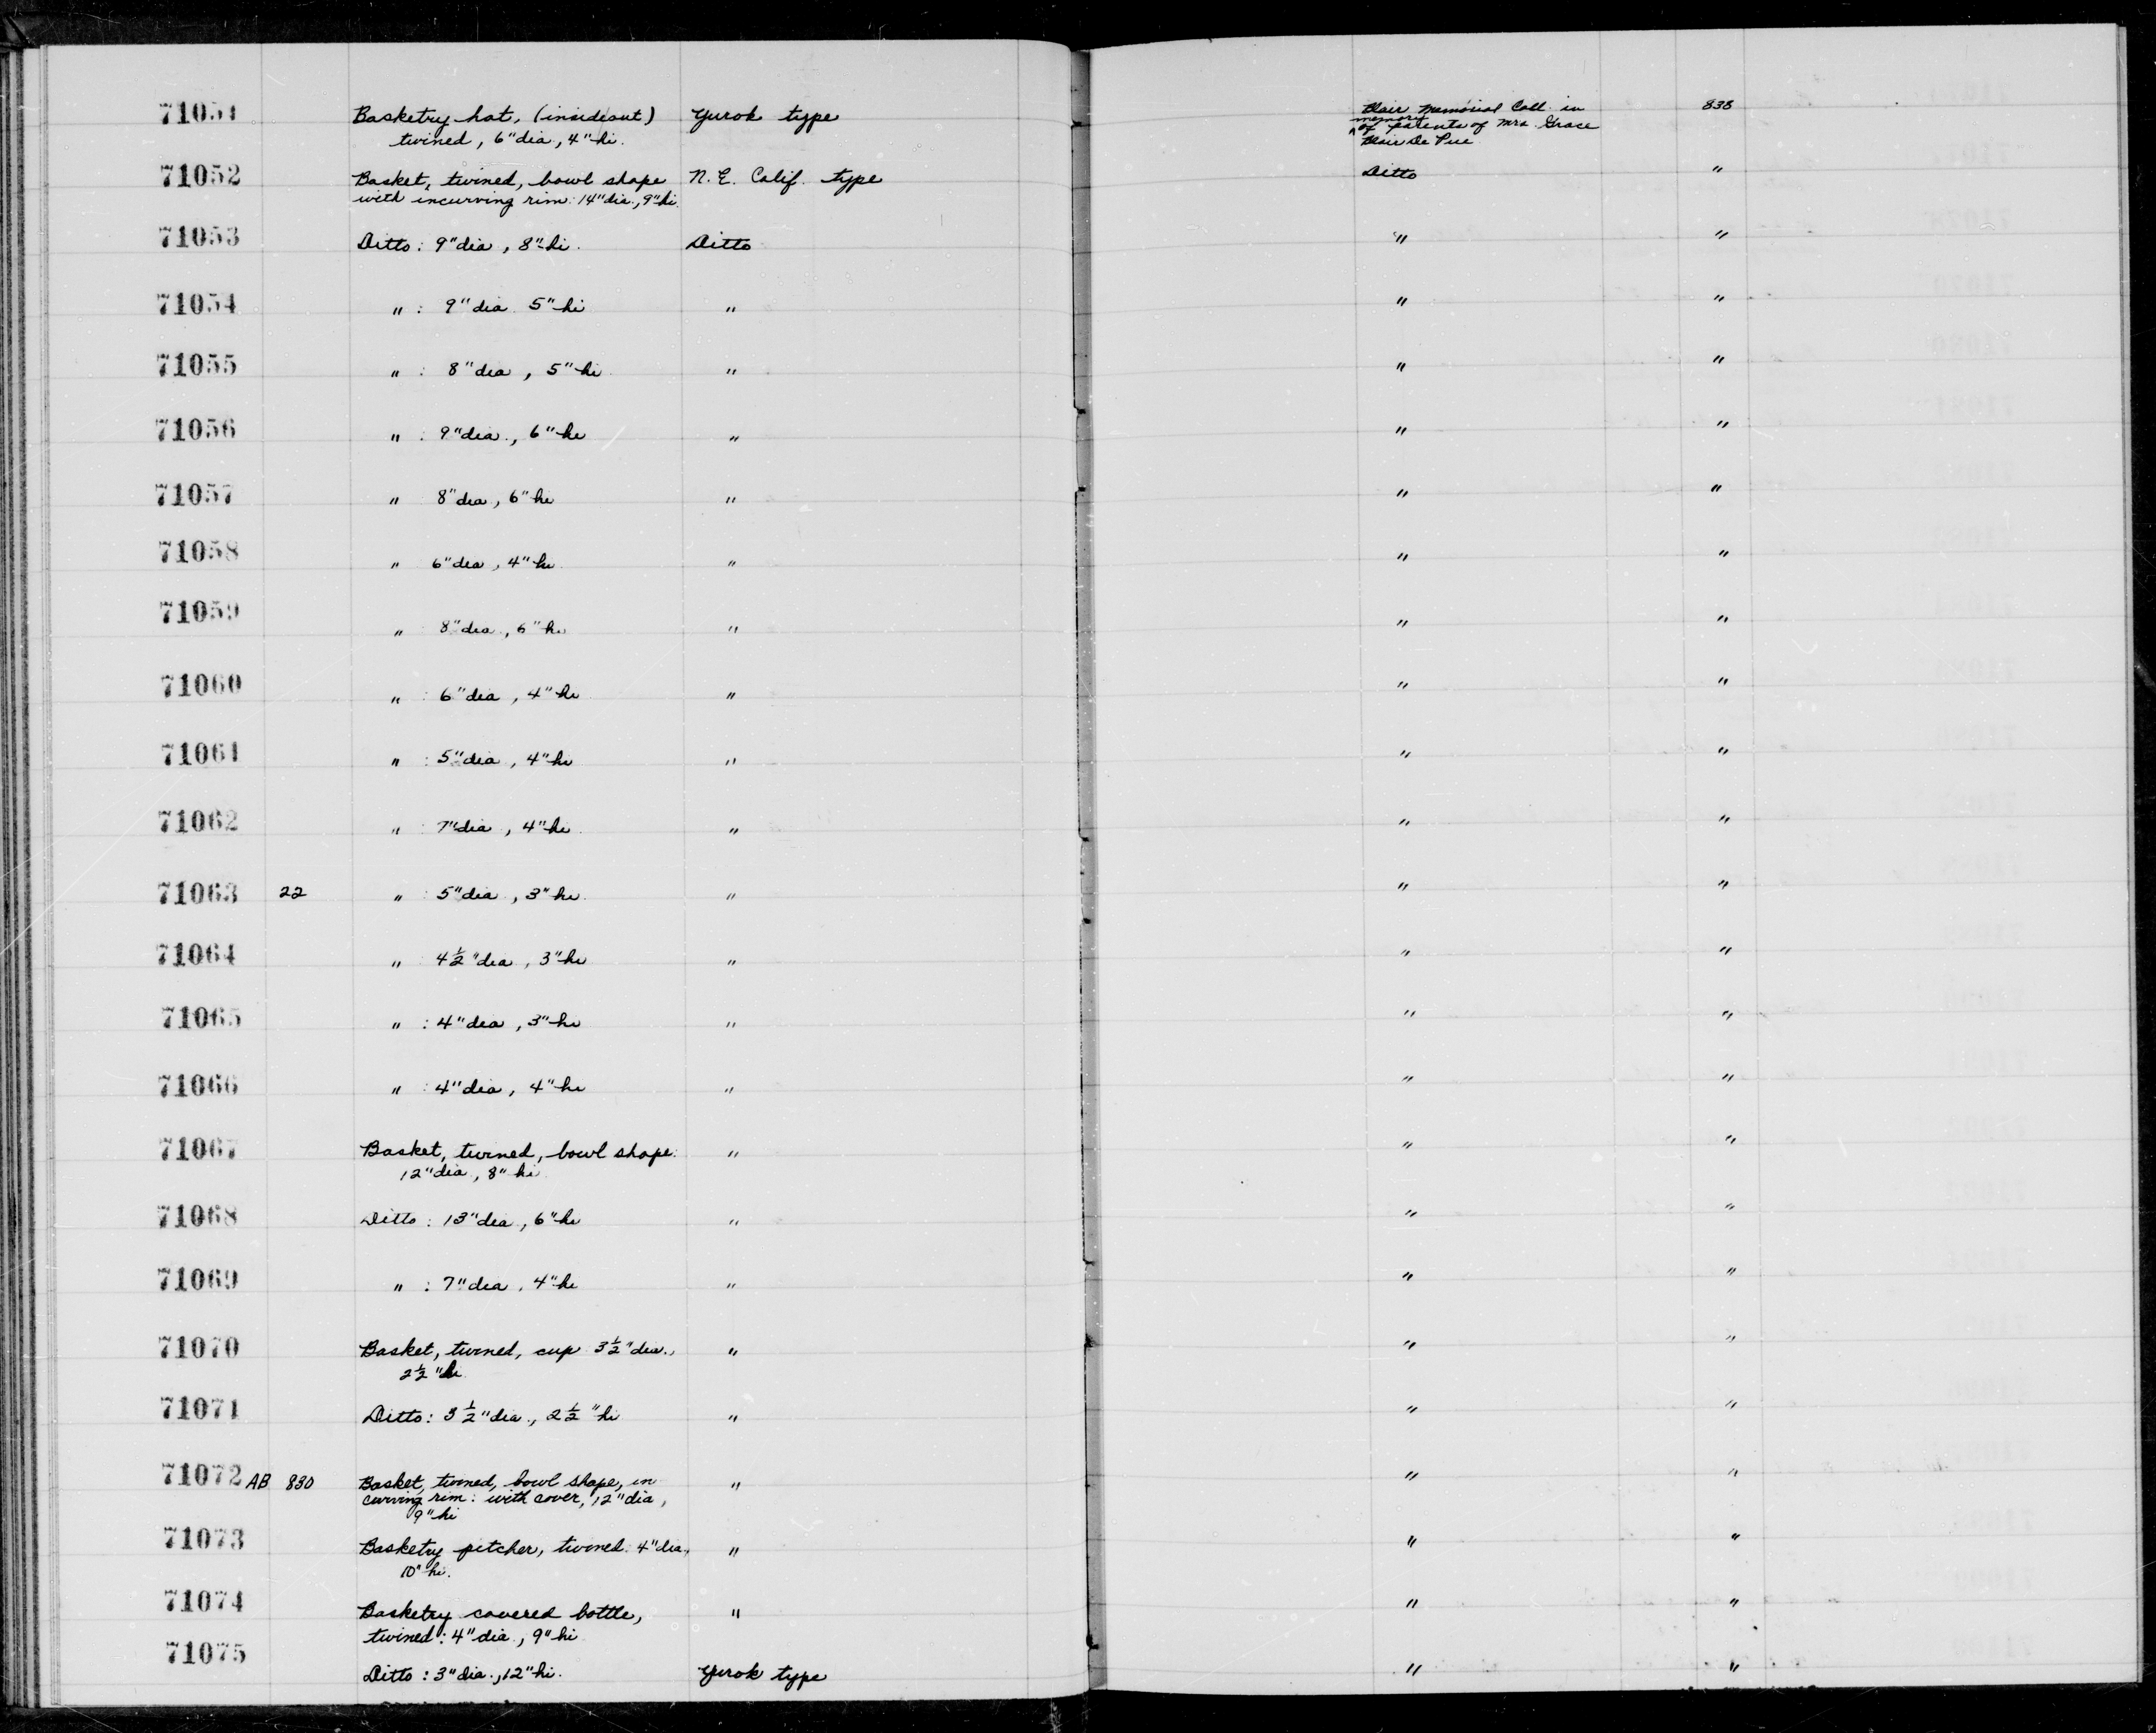 71051 Basketry hat, (insideout) Yurok type Blair Memorial Coll. in 838
twined, 6" dia, 4" hi. memory of parents of Mrs. Grace
Blair De Pue
71052 Basket, twined, bowl shape N.E. Calif. type Ditto "
with incurving rim: 14" dia., 9" hi.
71053 Ditto: 9" dia, 8" hi. Ditto " "
71054 " : 9" dia. 5" hi " " "
71055 " : 8" dia, 5" hi " " "
71056 " : 9" dia., 6" hi " " "
71057 " 8" dia, 6" hi " " "
71058 " 6" dia, 4" hi " " "
71059 " 8" dia, 6" hi " " "
71060 " : 6" dia, 4" hi " " "
71061 " : 5" dia, 4" hi " " "
71062 " : 7" dia, 4" hi " " "
71063 22 " : 5" dia, 3" hi " " "
71064 " : 4½" dia, 3" hi " " "
71065 " : 4" dia, 3" hi " " "
71066 " : 4" dia, 4" hi " " "
71067 Basket, twined, bowl shape: " " "
12" dia, 8" hi
71068 Ditto: 13" dia, 6" hi " " "
71069 " : 7" dia, 4" hi " " "
71070 Basket, twined, cup 3½" dia., " " "
2½" hi
71071 Ditto: 3½" dia., 2½" hi " " "
71072 AB 830 Basket, twined, bowl shape, in " " "
curving rim: with cover, 12" dia,
9" hi
71073 Basketry pitcher, twined: 4" dia, " " "
10" hi.
71074 Basketry covered bottle, " " "
twined: 4" dia., 9" hi
71075 Ditto: 3" dia., 12" hi. Yurok type " "